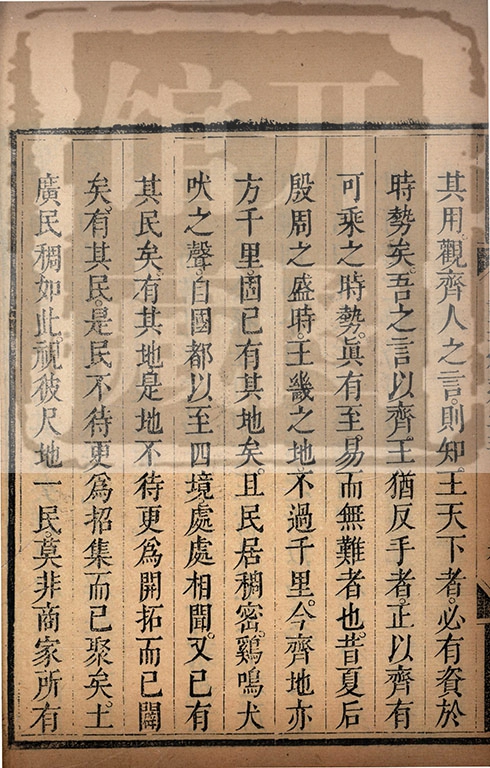 其用。觀齊人之言。則知。王天下者。必有資於
時勢矣。吾之言以齊。王猶反手者。正以齊有
可乘之時勢。眞有至易而無難者也。昔夏后
殷周之盛時。王畿之地。不過千里。今齊地亦
方千里。固已有其地矣。且民居稠密。鷄鳴犬
吠之聲。自國都以至四境。處處相聞。又已有
其民矣。有其地。是地不待更爲開拓而已闢
矣。有其民。是民不待更爲招集而已聚矣。土
廣民稠如此。視彼尺地一民。莫非商家所有